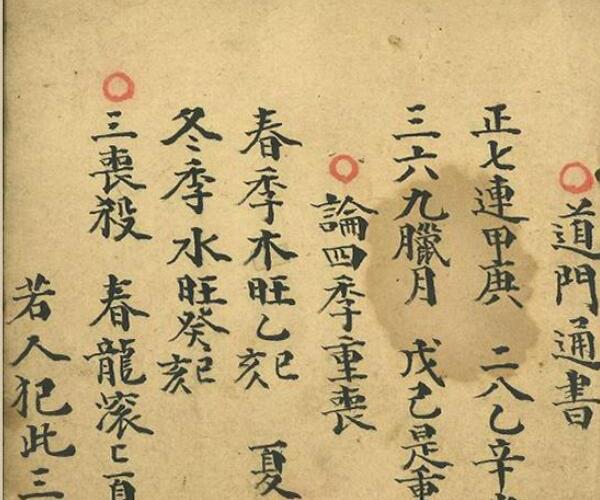 道門通書
正七連甲庚 二八乙辛
三六九臘月 戊己是重
論四季重喪
春季木旺乙亥巳 夏
冬季水旺癸亥巳
三喪殺 春龍滚
若人犯此三